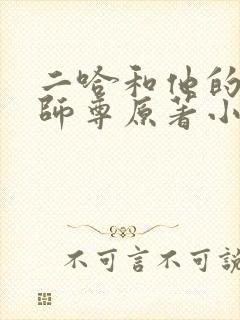 二哈和他的
師尊原著小
不可言不可說